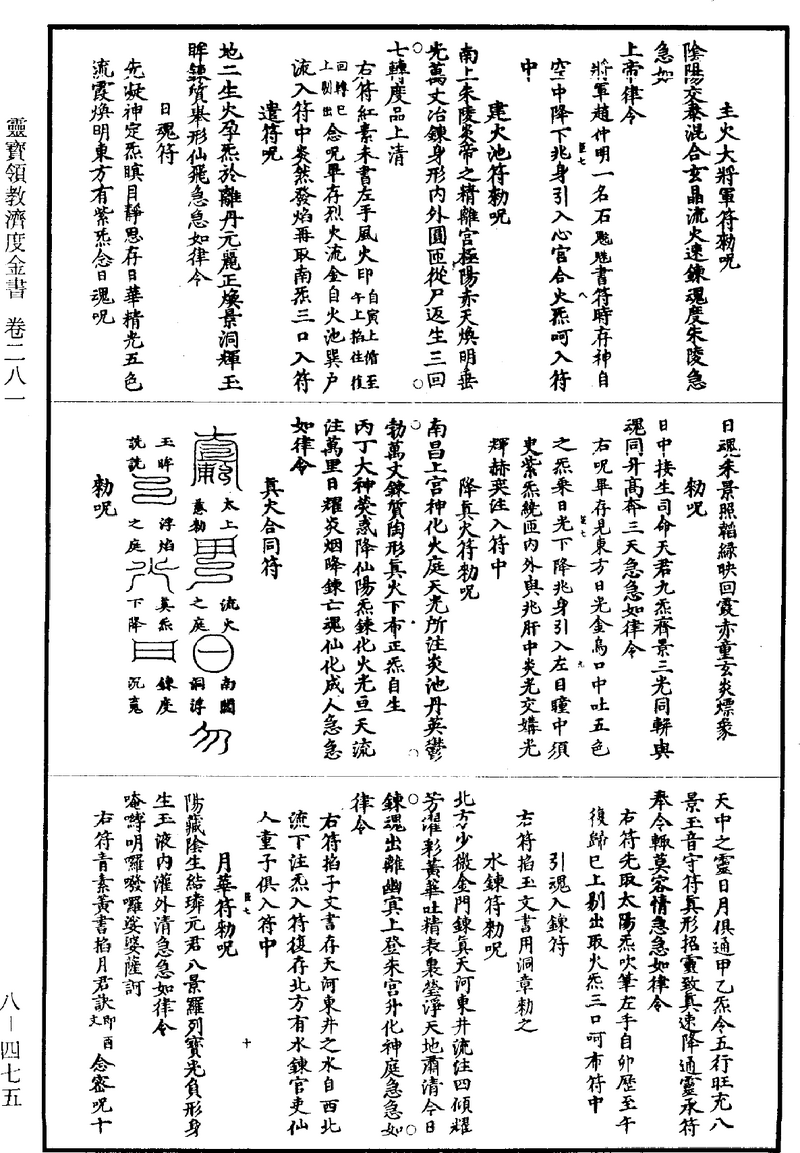 靈寶領教濟度金書　卷二八一
主火大將軍符勑呪
陰陽交泰混合玄晶流火速鍊魂度朱陵急
急如
上帝律令
將軍趙仲明一名石書符時存神自
空中降下兆身引入心宮合火炁呵入符
中
建火池符勑呪
南上朱陵炎帝之精離宮極陽赤天煥明垂
光萬丈冶鍊身形內外圓匝從尸返生三回
七轉度品上清
右符紅素朱書左手風火印自寅上脩至午上掐住復
回轉巳上剔出念呪畢存烈火流金自火池巽戶
流入符中炎然發焰再取南炁三口入符
遣符呪
地二生火孕炁於離丹元麗正煥景洞輝玉
眸鍊質炁形仙飛急急如律令
日魂符
先凝神定炁瞑目靜思存日華精光五色
流霞煥明東方有紫炁念日魂呪
日魂朱景照韜綠映回霞赤童玄炎熛象
勑呪
日中接生司命天君九炁齊景三光同軿與
魂同升高奔三天急急如律令
右呪畢存見東方日光金烏口中吐五色
之炁乘日光下降兆身引入左目瞳中須
臾紫炁繞匝內外與兆肝中炎光交媾光
輝赫奕注入符中
降真火符勑呪
南昌上宮神化火庭天光所注炎池丹英鬱
勃萬丈鍊質陶形真火下布正炁自生
丙丁大神熒惑降仙陽炁鍊化火光亘天流
注萬里日耀炎烟降鍊亡魂仙化成人急急
如律令
真火合同符
太上　流火　南闕
慈勑　之庭　洞浮
玉眸　浮焰　真炁　鍊度
詵詵　之庭　下降　沉爽
勑呪
天中之靈日月俱通甲乙炁令五行旺充八
景玉音守符真形招靈致真速降通靈承符
奉令輙莫容情急急如律令
右符先取太陽炁吹筆左手自卯歷至午
復歸巳上剔出取火炁三口呵布符中
引魂入鍊符
右符掐玉文書用洞章勑之
水鍊符勑呪
北方少微金門鍊真天河東井流注四傾耀
芳濯彩黃華吐精表裏瑩淨天地肅清今日
鍊魂出離幽冥上登朱宮升化神庭急急如
律令
右符掐子文書存天河東井之水自西北
流下注炁入符復存北方有水鍊官吏仙
人童子俱入符中
月華符勑呪
陽藏陰生結璘元君八景羅列寶光負形身
生玉液內灌外清急急如律令
唵嚩明囉㗶囉娑婆薩訶
右符青素黃書掐月君訣即酉文念密呪十
八—四七五